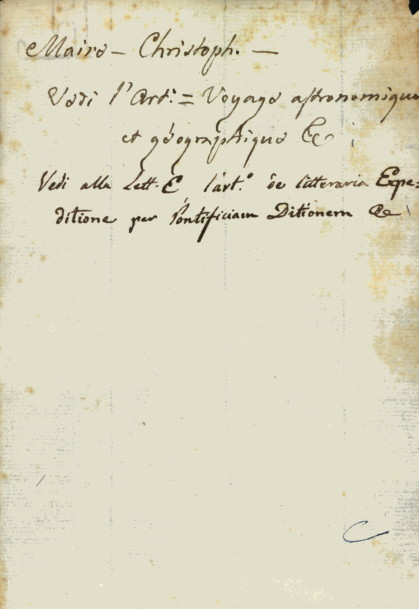 Maire – Christoph. –
Vedi l'Art. = Voyage astronomique
et géographique &c
Vedi alla Lett. E l'art.º de litteraria Expe=
ditione per Pontificiam Ditionem &c